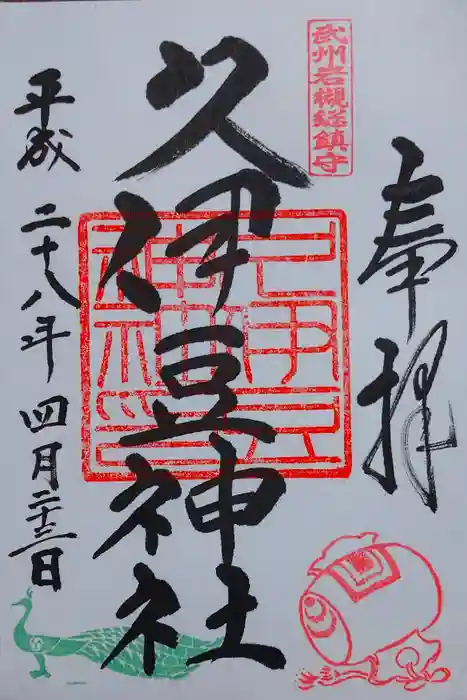 武州岩槻総鎮守
奉拝
久伊豆神社
平成二十八年四月二十三日